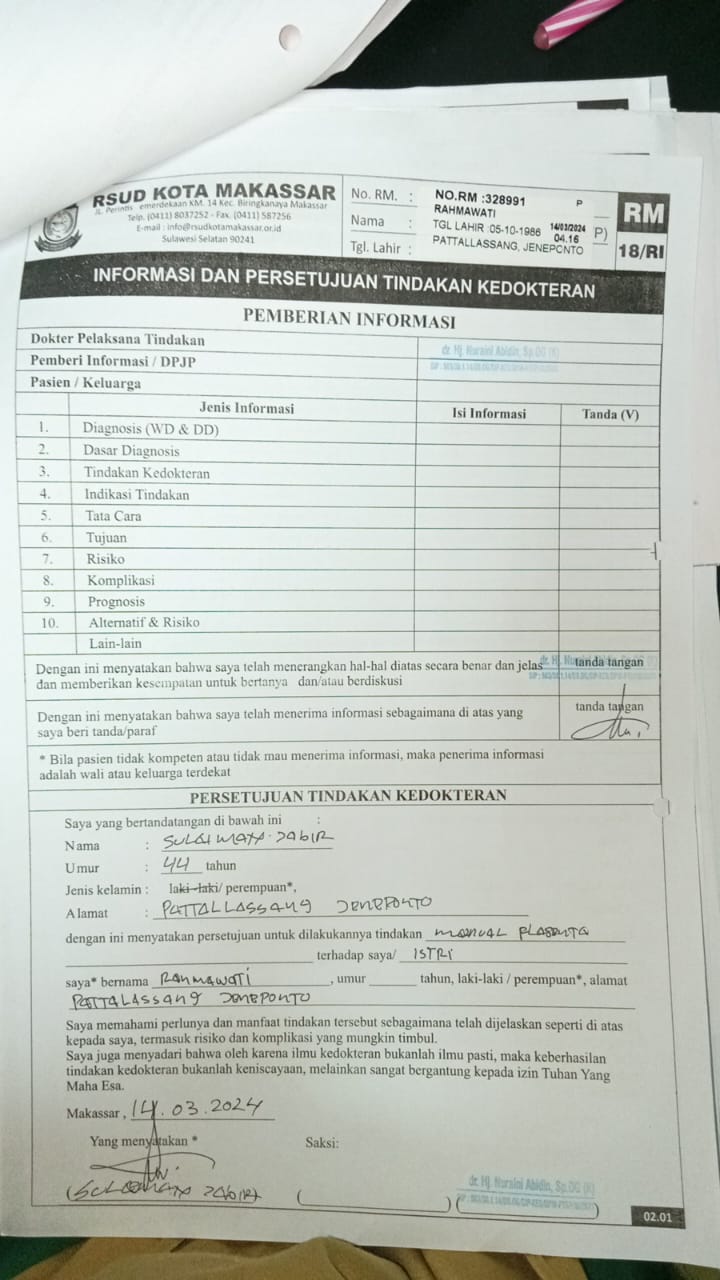 RSUD KOTA MAKASSAR
JL. Perintis emerdekaan KM. 14 Kec. Biringkanaya Makassar
Telp. (0411) 8037252 - Fax. (0411) 587256
E-mail : info@rsudkotamakassar.or.id
Sulawesi Selatan 90241
No. RM. : NO.RM :328991 P
Nama : RAHMAWATI
TGL LAHIR :05-10-1986 14/03/2024 P)
Tgl. Lahir : PATTALLASSANG, JENEPONTO 04.16
RM
18/RI
INFORMASI DAN PERSETUJUAN TINDAKAN KEDOKTERAN
PEMBERIAN INFORMASI
Dokter Pelaksana Tindakan
Pemberi Informasi / DPJP dr. Hj. Nuraini Abidin, Sp.OG (K)
Pasien / Keluarga
Jenis Informasi Isi Informasi Tanda (V)
1. Diagnosis (WD & DD)
2. Dasar Diagnosis
3. Tindakan Kedokteran
4. Indikasi Tindakan
5. Tata Cara
6. Tujuan
7. Risiko
8. Komplikasi
9. Prognosis
10. Alternatif & Risiko
Lain-lain
Dengan ini menyatakan bahwa saya telah menerangkan hal-hal diatas secara benar dan jelas
dan memberikan kesempatan untuk bertanya dan/atau berdiskusi
dr. Hj. Nuraini Abidin, Sp.OG (K)
tanda tangan
Dengan ini menyatakan bahwa saya telah menerima informasi sebagaimana di atas yang
saya beri tanda/paraf
tanda tangan
* Bila pasien tidak kompeten atau tidak mau menerima informasi, maka penerima informasi
adalah wali atau keluarga terdekat
PERSETUJUAN TINDAKAN KEDOKTERAN
Saya yang bertandatangan di bawah ini :
Nama : DabIR
Umur : 44 tahun
Jenis kelamin : laki-laki/ perempuan*,
Alamat : PATTALLASSANG JENEPONTO
dengan ini menyatakan persetujuan untuk dilakukannya tindakan manual PLASENTA
terhadap saya/ ISTRI
saya* bernama Rahmawati, umur tahun, laki-laki / perempuan*, alamat
PATTALASSANG JENEPONTO
Saya memahami perlunya dan manfaat tindakan tersebut sebagaimana telah dijelaskan seperti di atas
kepada saya, termasuk risiko dan komplikasi yang mungkin timbul.
Saya juga menyadari bahwa oleh karena ilmu kedokteran bukanlah ilmu pasti, maka keberhasilan
tindakan kedokteran bukanlah keniscayaan, melainkan sangat bergantung kepada izin Tuhan Yang
Maha Esa.
Makassar , 14.03.2024
Yang menyatakan * Saksi:
dr. Hj. Nuraini Abidin, Sp.OG (K)
02.01